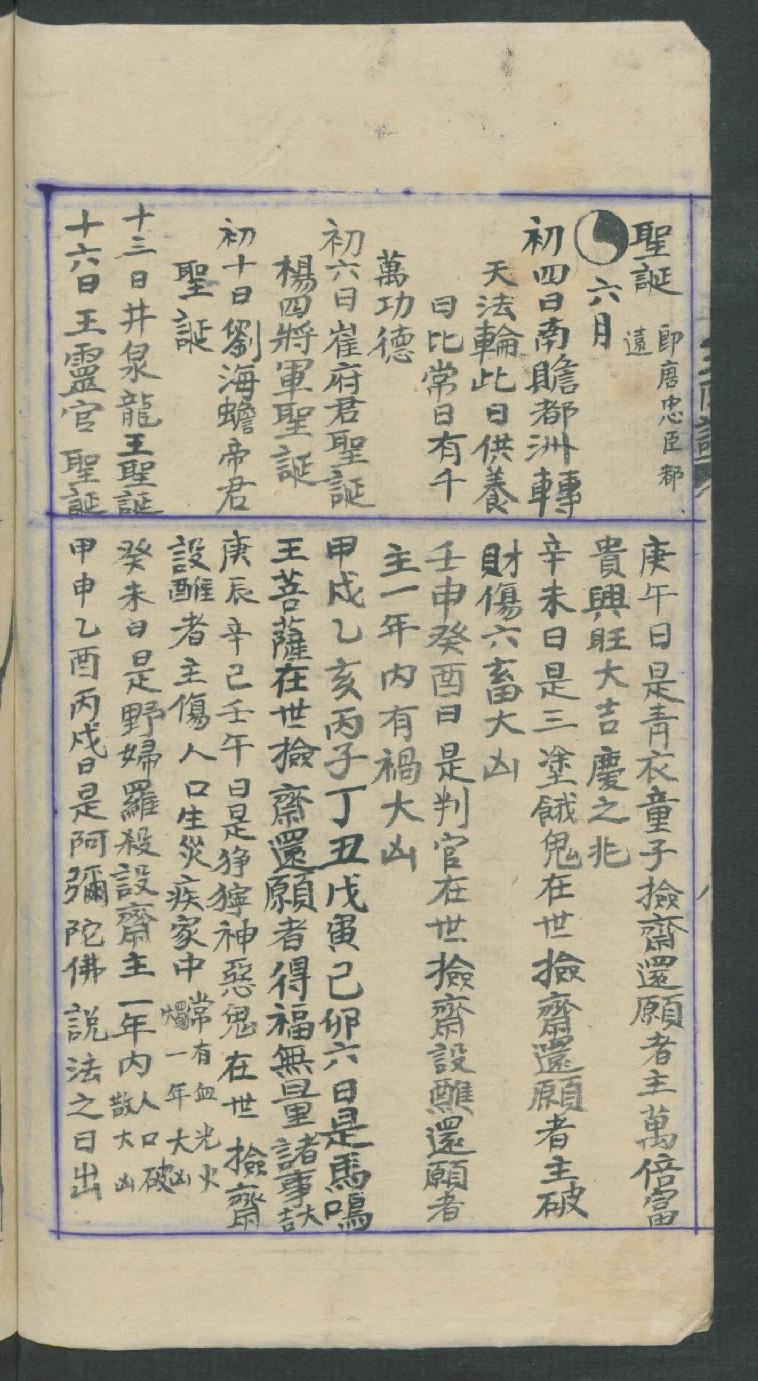 聖誕 即唐忠臣都
遠
六月
初四日南贍都洲轉
天法輪此日供養
日比常日有千
萬功德
初六日崔府君聖誕
楊四將軍聖誕
初十日劉海蟾帝君
聖誕
十三日井泉龍王聖誕
十六日王靈官聖誕
庚午日是青衣童子撿齋還願者主萬倍富
貴興旺大吉慶之兆
辛未日是三塗餓鬼在世撿齋還願者主破
財傷六畜大凶
壬申癸酉日是判官在世撿齋設醮還願者
主一年內有禍大凶
甲戌乙亥丙子丁丑戊寅己卯六日是馬鳴
王菩薩在世撿齋還願者得福無量諸事
庚辰辛己壬午日是猙獰神惡鬼在世撿齋
設醮者主傷人口生災疾家中常有血光火
燭一年大凶
癸未日是野婦羅殺設齋主一年內人口破
散大凶
甲申乙酉丙戌日是阿彌陀佛說法之日出